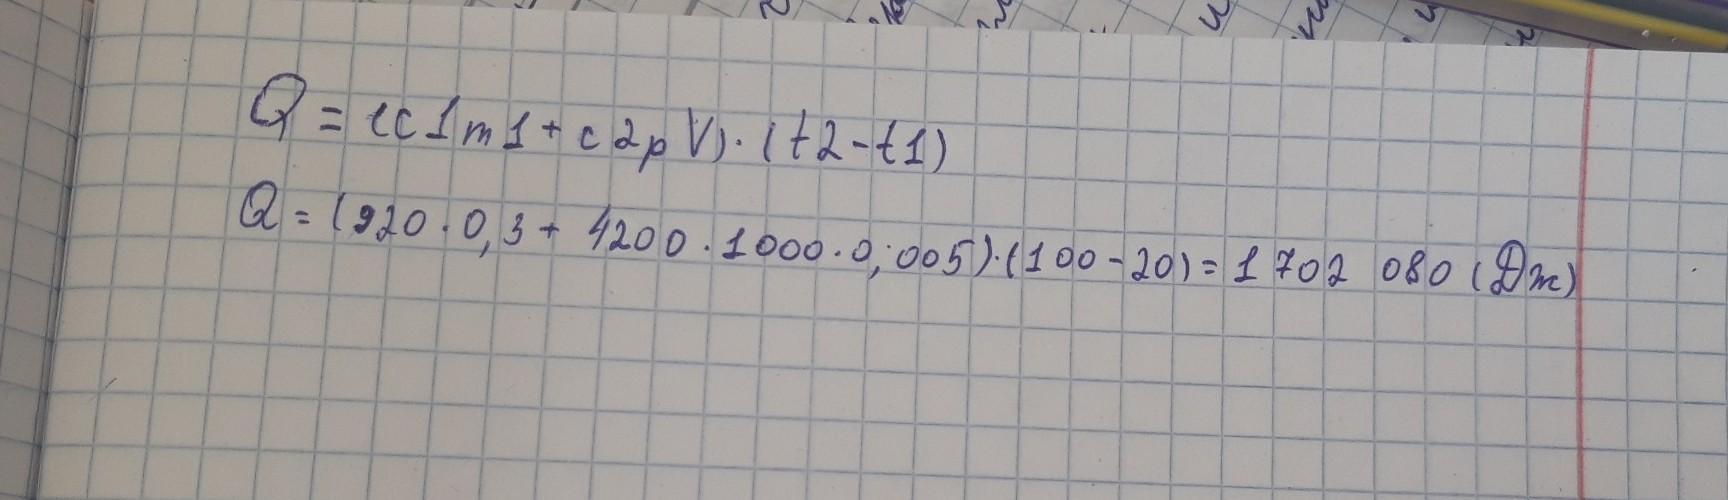 Q = (c1m1 + c2pV)·(t2-t1)
Q = (920·0,3 + 4200·1000·0,005)·(100-20) = 1 702 080 (Дж)